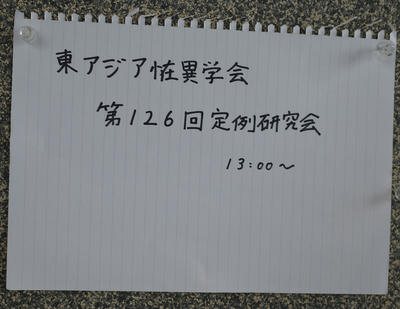 東アジア恠異学会
第126回定例研究会
13:00~